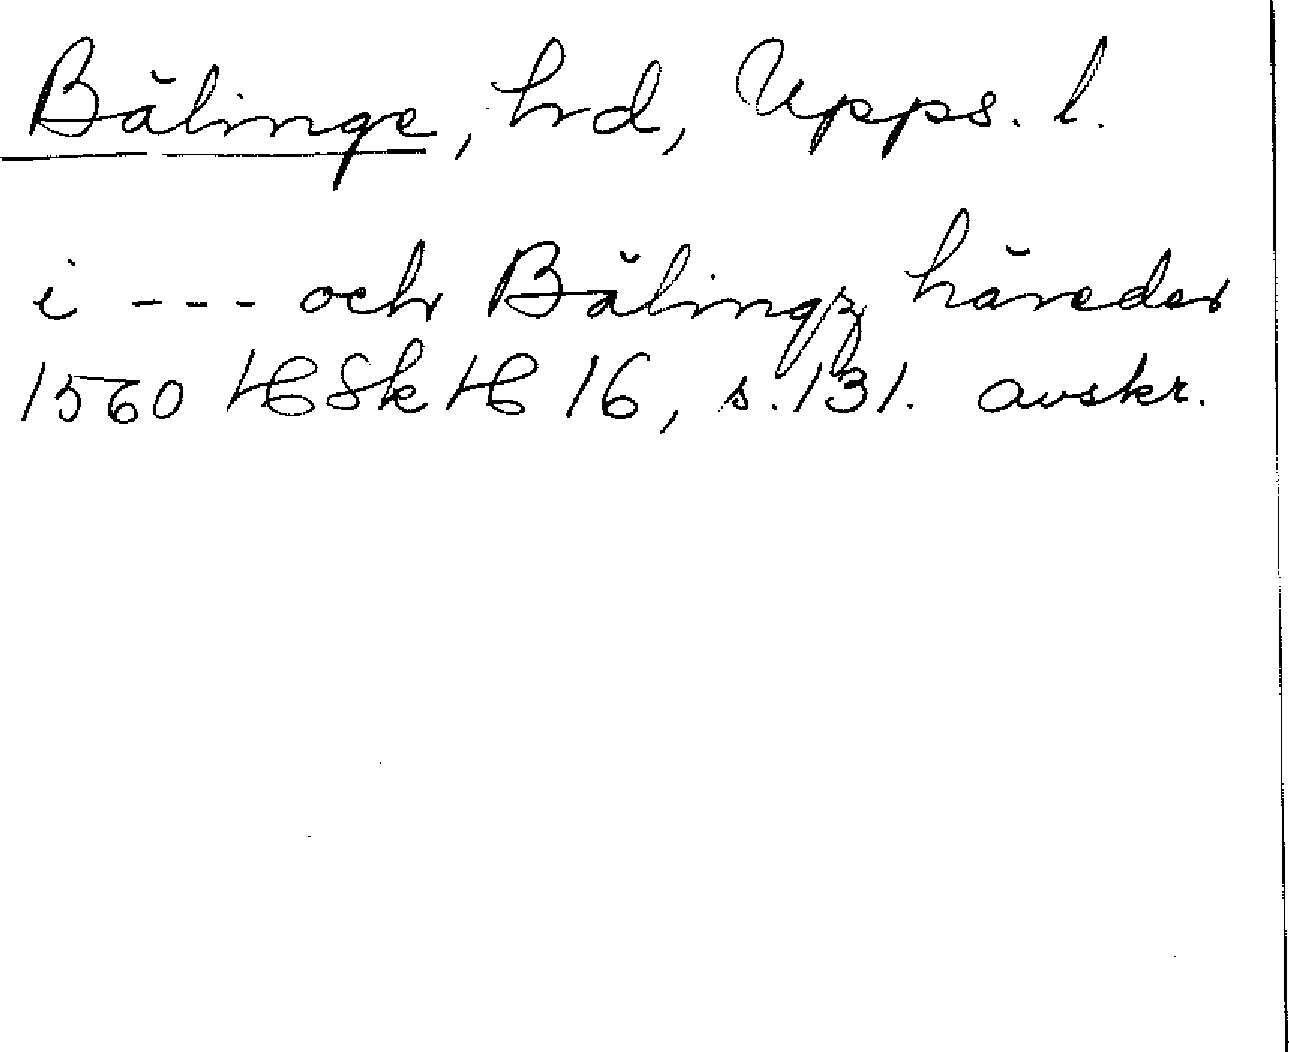 Bälinge, hrd, Upps. l.
i --- och Bälingz häreder
1560 HSkH 16, s. 131. avskr.